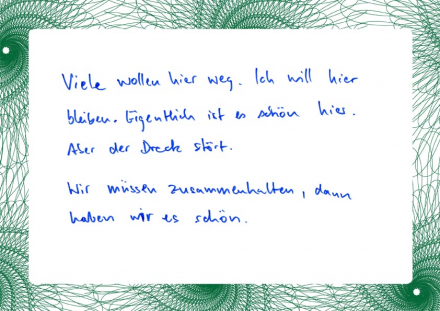 Viele wollen hier weg. Ich will hier
bleiben. Eigentlich ist es schön hier.
Aber der Dreck stört.
Wir müssen zusammenhalten, dann
haben wir es schön.